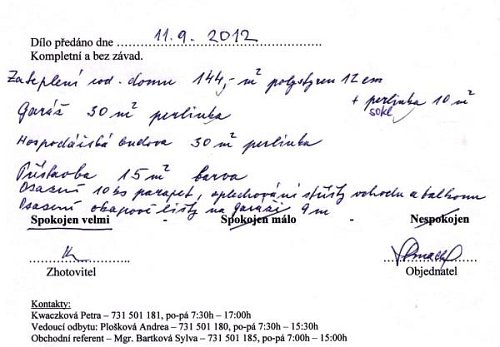 Dílo předáno dne 11.9. 2012
Kompletní a bez závad.
Zateplení rod. domu 144,- m² polystyren 12 cm
+ perlinka 10 m²
sokl
Garáž 30 m² perlinka
Hospodářská budova 30 m² perlinka
Přístavba 15 m² barva
Osazení 10 ks parapet, oplechování stříšky vchodu a balkonu
Osazení okapové lišty na garáži 9 m
Spokojen velmi - Spokojen málo - Nespokojen
Zhotovitel Objednatel
Kontakty:
Kwaczková Petra – 731 501 181, po-pá 7:30h – 17:00h
Vedoucí odbytu: Plošková Andrea – 731 501 180, po-pá 7:30h – 15:30h
Obchodní referent – Mgr. Bartková Sylva – 731 501 185, po-pá 7:00h – 15:00h